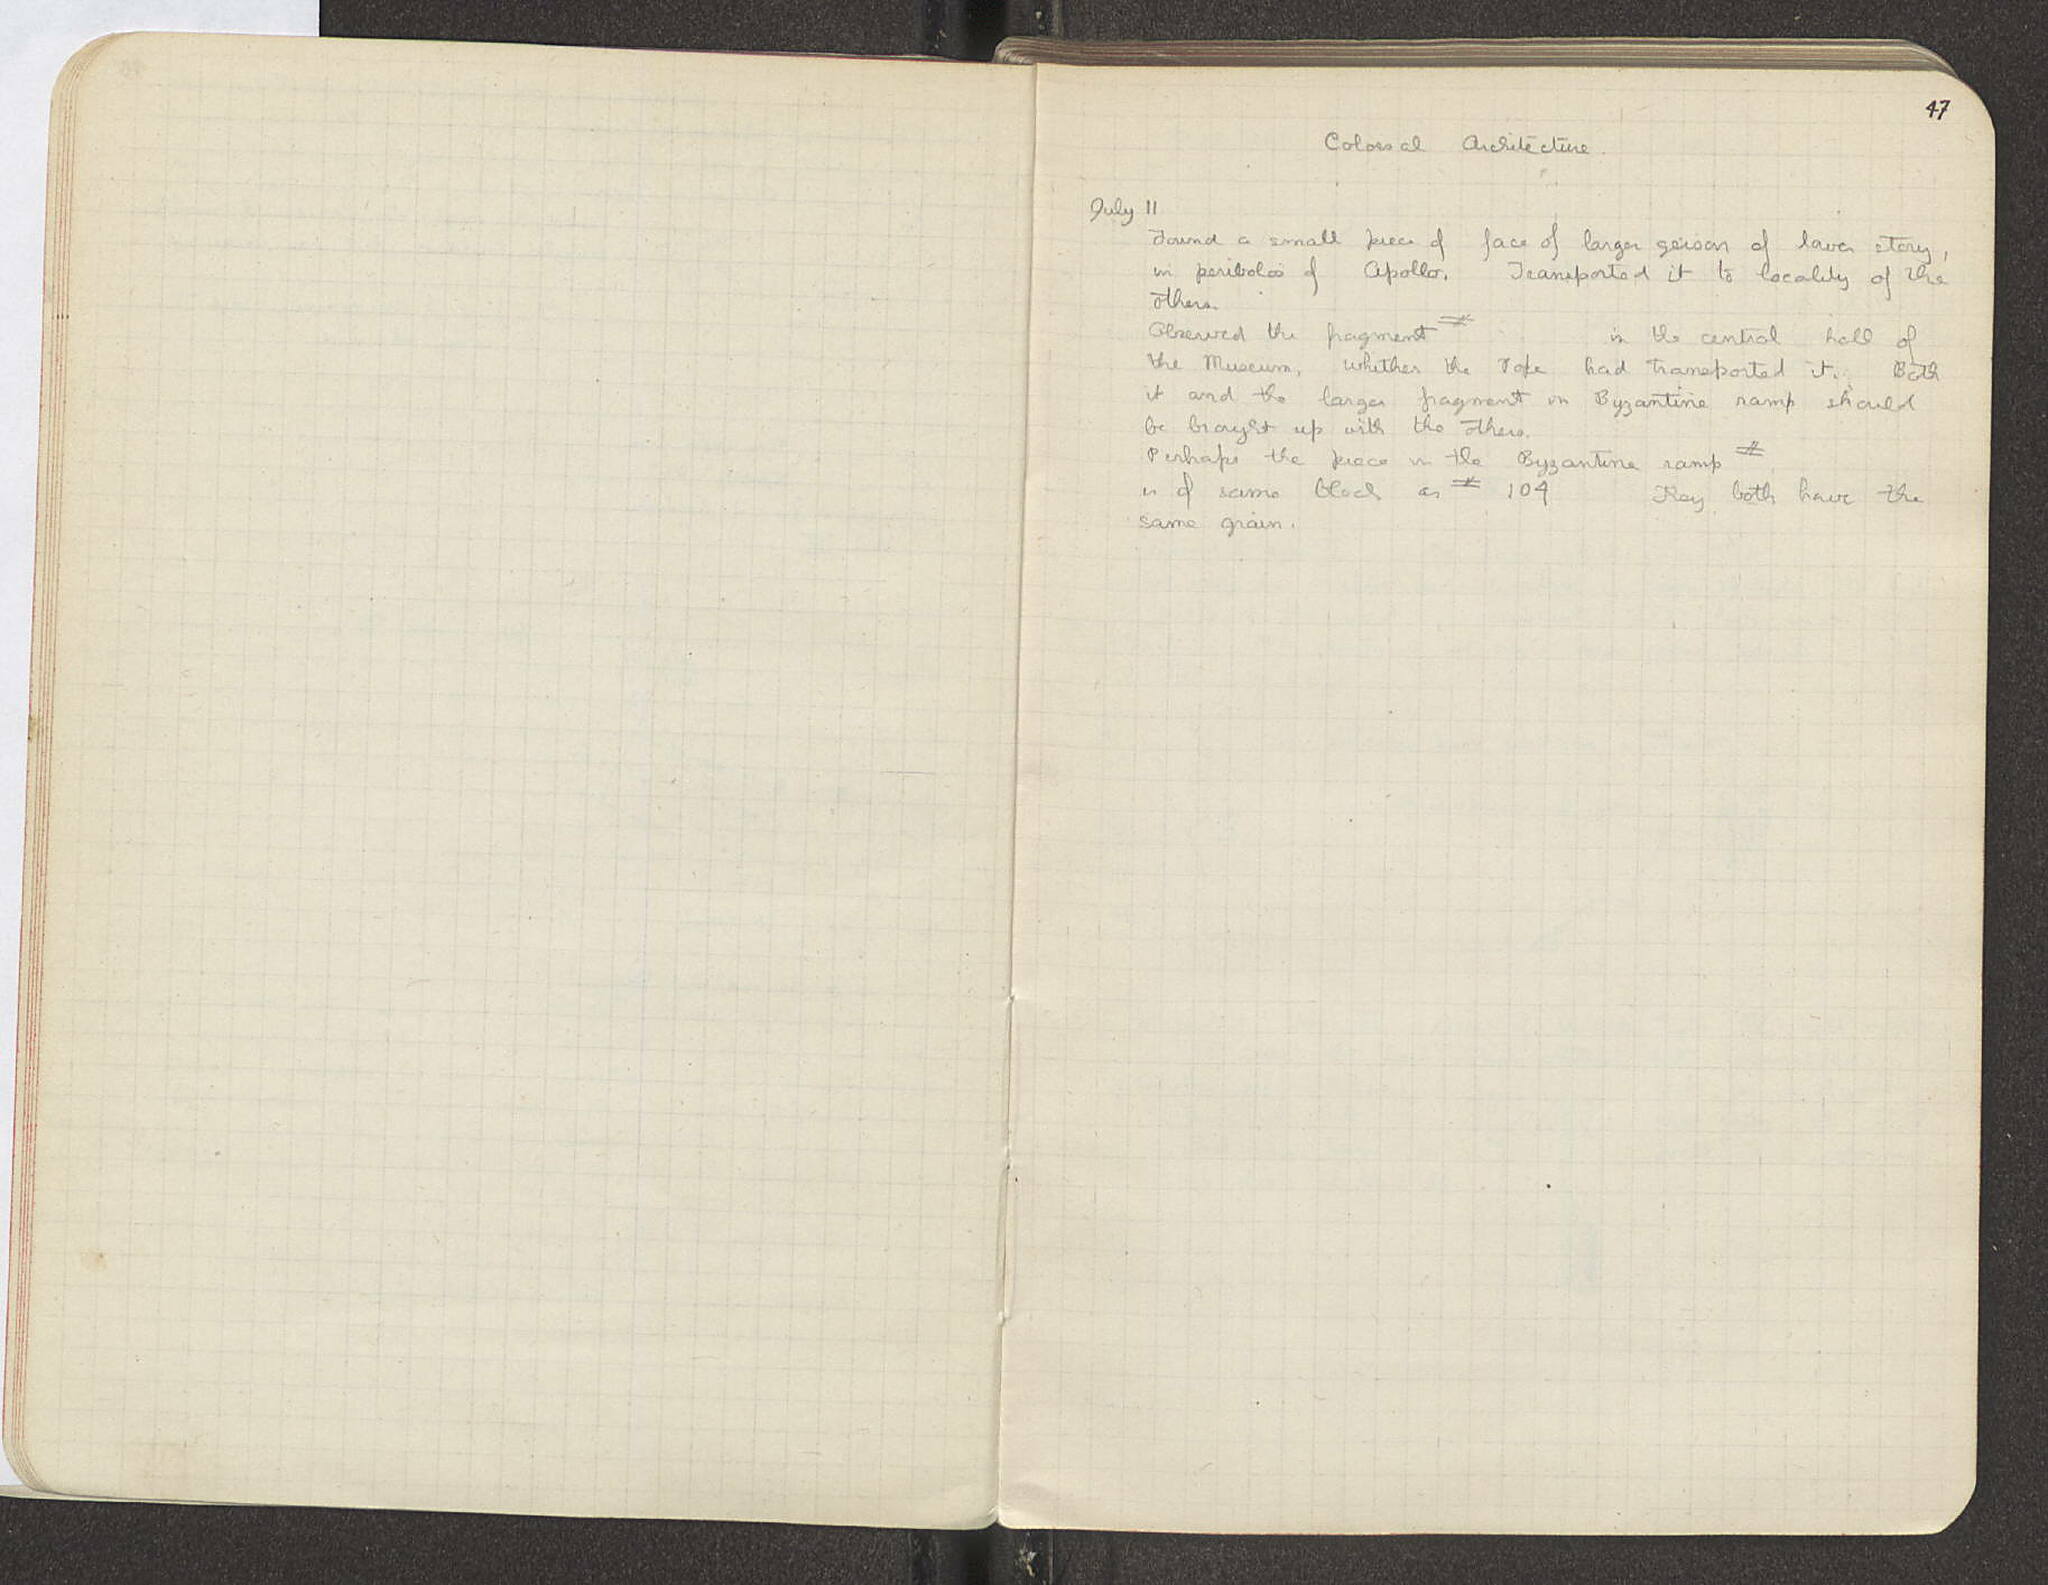 47
Colossal Architecture.
July 11
Found a small piece of face of larger geison of lower story,
in peribolos of Apollo. Transported it to locality of the
others.
Observed the fragment # in the central hall of
the Museum, whither the had transported it. Both
it and the larger fragment in Byzantine ramp should
be brought up with the others.
Perhaps the piece in the Byzantine ramp #
is of same block as # 104 They both have the
same grain.